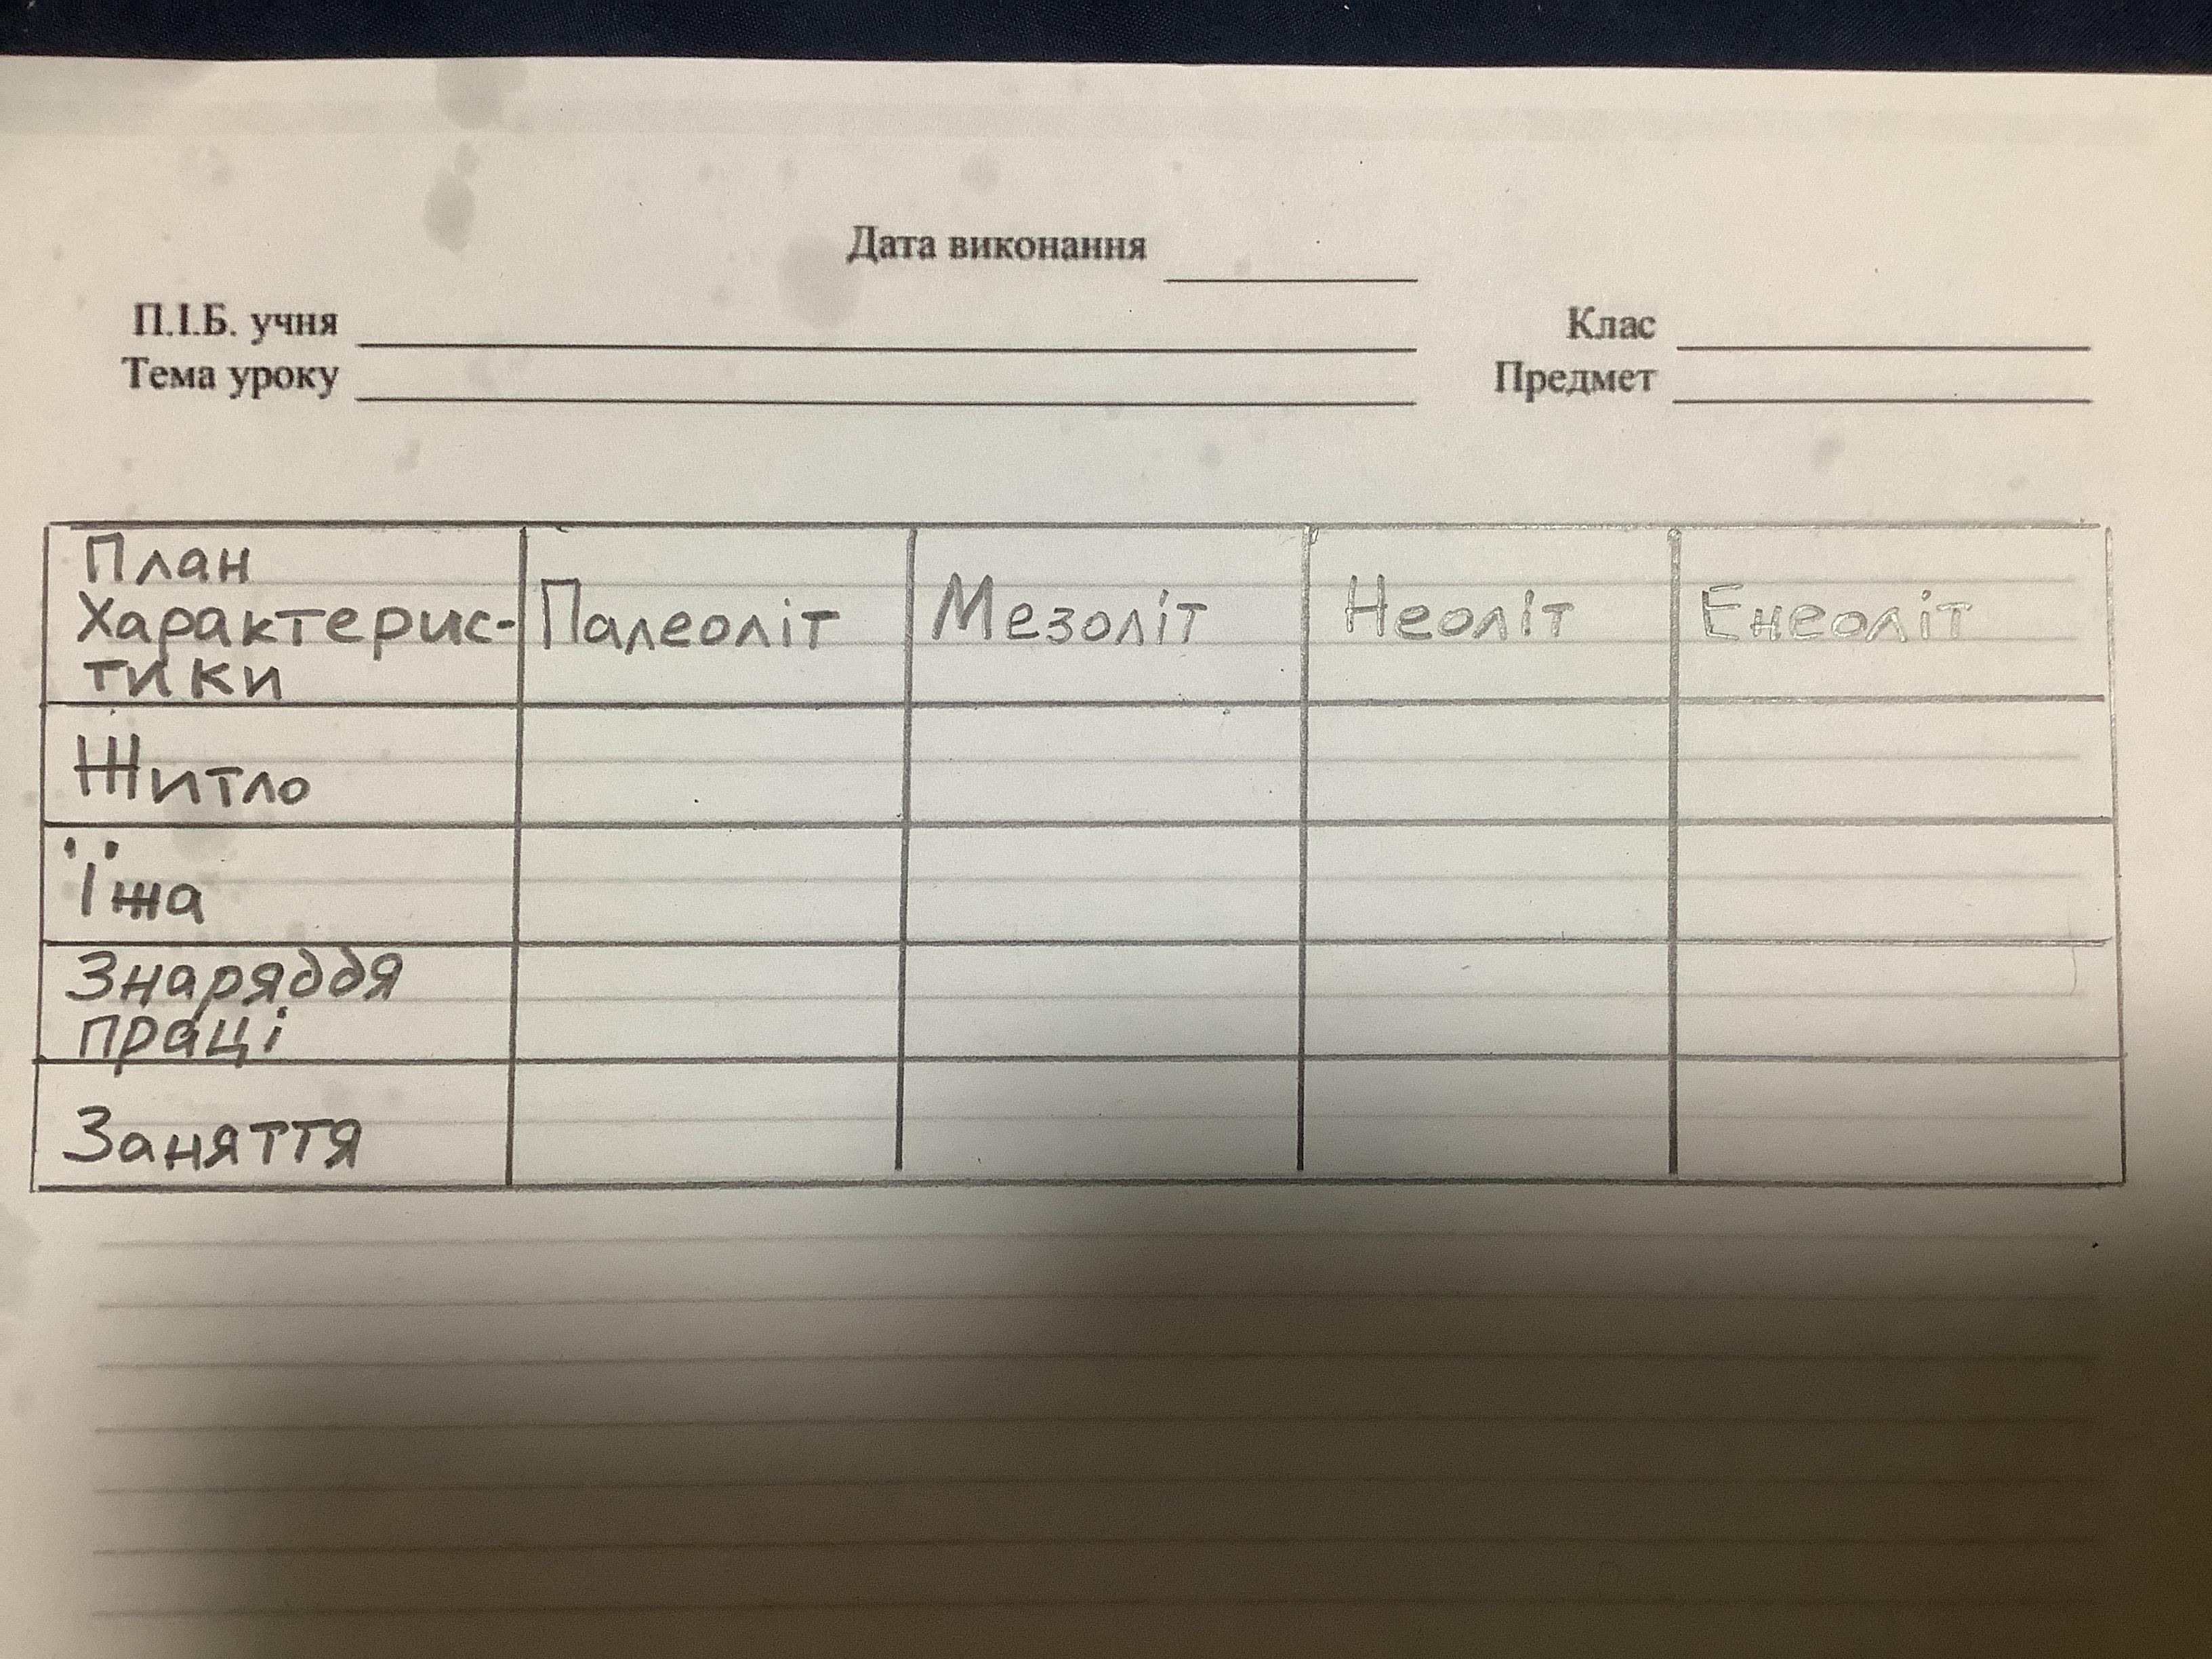 Дата виконання
П.І.Б. учня
Клас
Тема уроку
Предмет
План
Характерис-
тики
Палеоліт
Мезоліт
Неоліт
Енеоліт
Житло
Їжа
Знаряддя
праці
Заняття